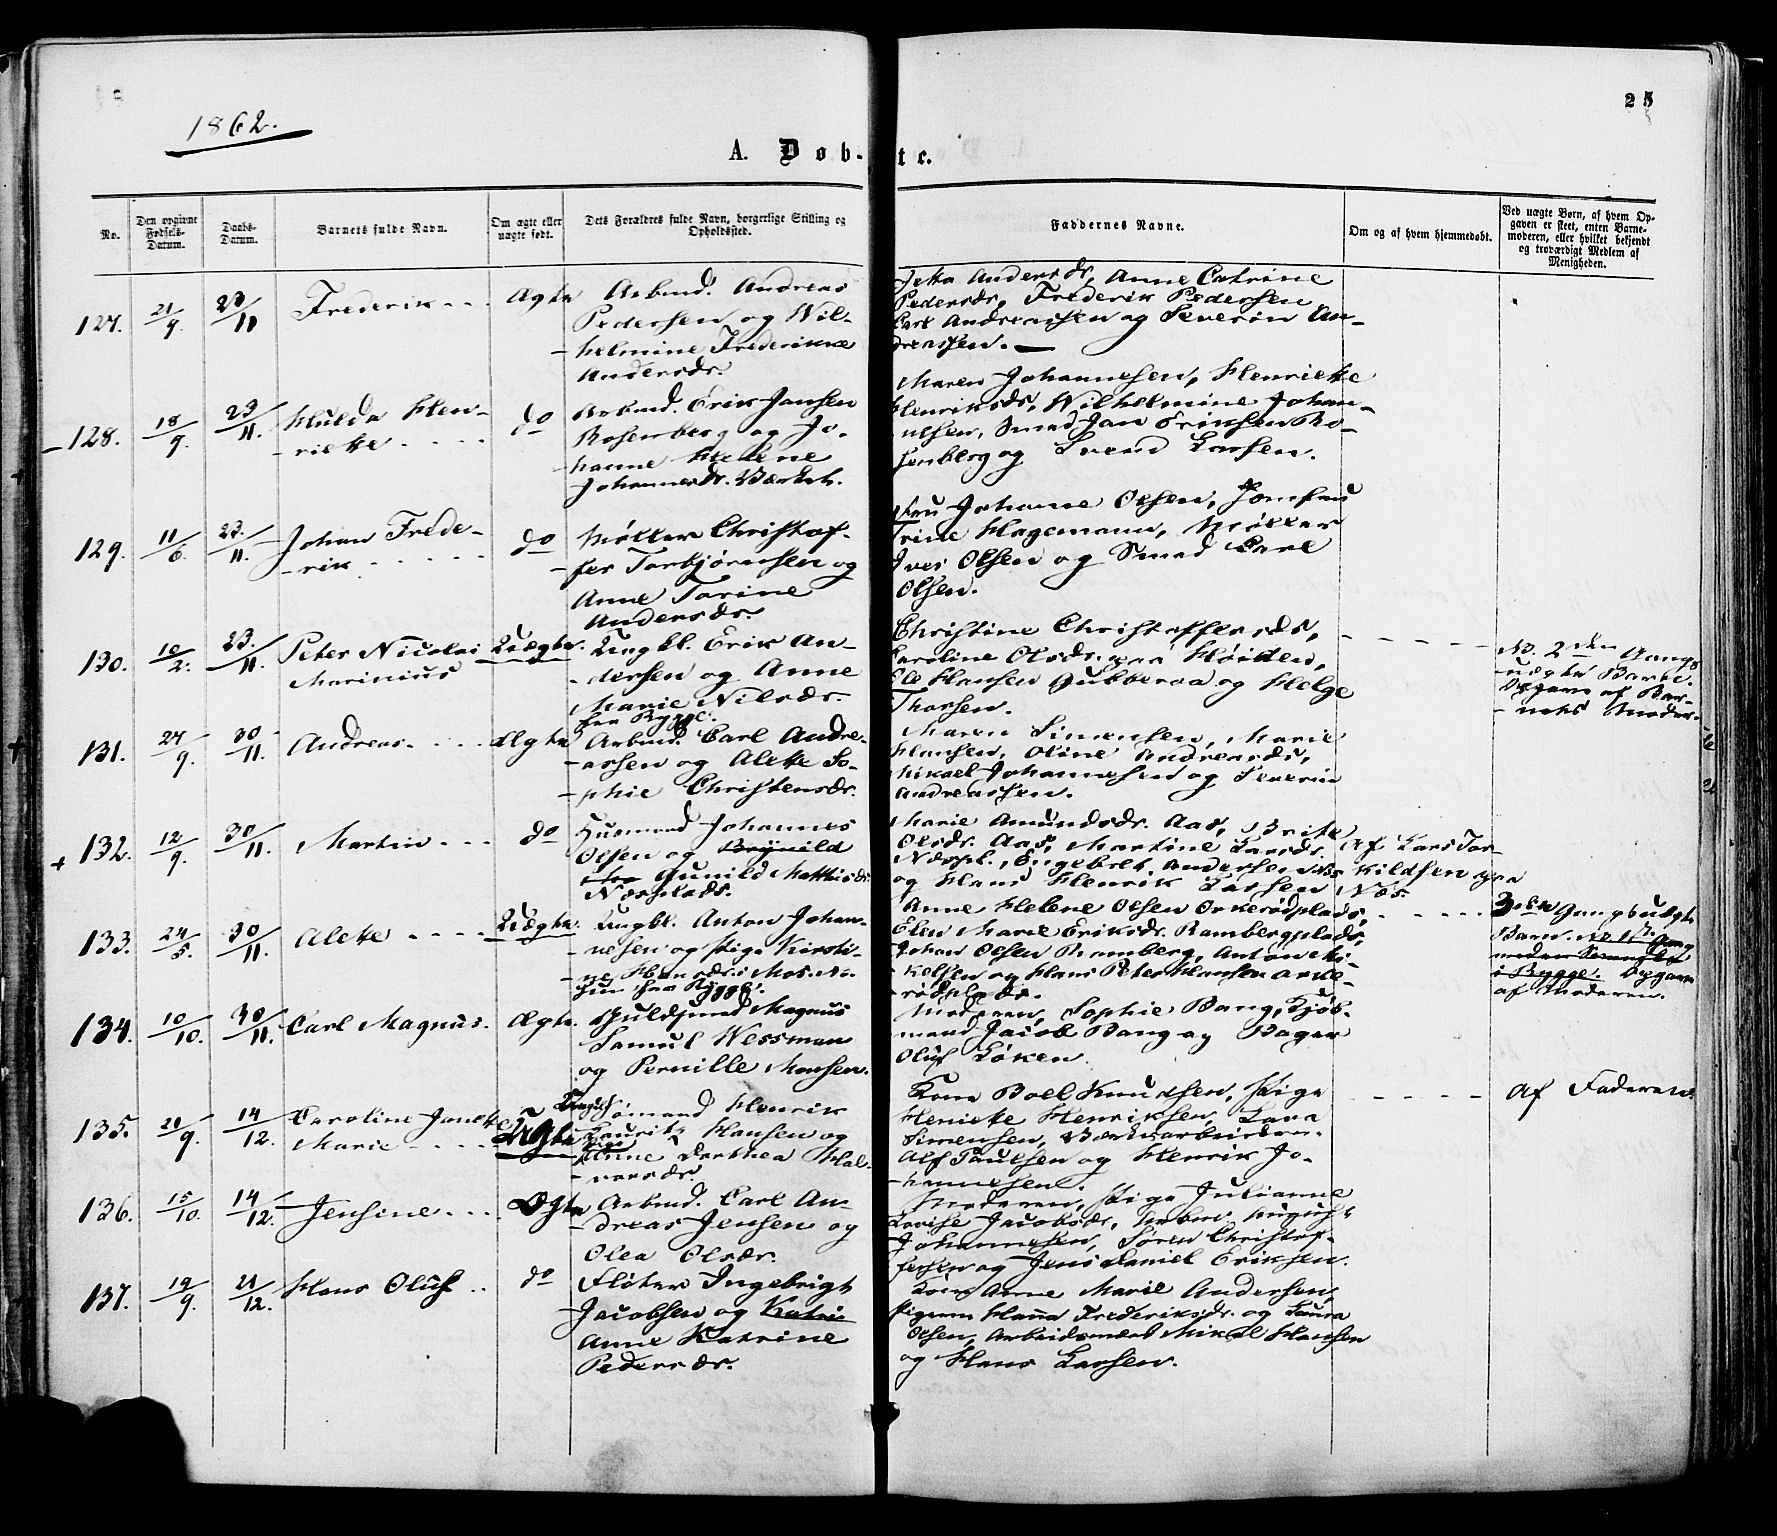 25
1862.
A. Døb- te.
No.
Den opgivne Fødsels-Datum.
Daabs-Datum.
Barnets fulde Navn.
Om ægte eller uægte født.
Dets Forældres fulde Navn, borgerlige Stilling og Opholdssted.
Faddernes Navne.
Om og af hvem hjemmedøbt.
Ved uægte Børn, af hvem Opgaven er skeet, enten Barnemoderen, eller hvilket bekjendt og troværdigt Medlem af Menigheden.
127. 21/9. 23/11 Frederik Ægte
Arbmd. Andreas
Pedersen og Wil-
-helmine Frederikke
Andersdr.
Jetta Andersdr, Anne Catrine
Pedersdr, Frederik Pedersen
Carl Andreassen og Severin An-
dreassen.
128. 18/9. 23/11. Hulda Hen-
-riette do
Arbmd. Erik Jansen
Rosenberg og Jo-
hanne Helene
Johannesdr. Værket.
Maren Johannesen, Henriette
Henriksdr, Wilhelmine Johan-
nesen, Smed Jan Eriksen Ro-
senberg og Svend Larsen.
129. 11/6. 23/11. Johan Frede-
-rik do
Møller Christof-
-fer Torbjørnsen og
Anne Torine
Andersdr.
Fru Johanne Olsen, Jomfru
Trine Hagemann, Møller
Iver Olsen og Smed Carl
Olsen.
130. 10/2. 23/11. Peter Nicolai
Marinius Uægte.
Ungkl. Erik An-
-dersen og Anne
Marie Nilsdr.
fra Rygge.
Christine Christoffersdr,
Caroline Olsdr. paa Høiden,
Ole Hansen Gubberaa og Helge
Thorsen.
No. 2den Gangs
uægte Barn.
Opgave af Bar-
-nets Moder.
131. 27/9. 30/11. Andreas. Ægte
Arbmd. Carl Andre-
-assen og Alette So-
-phie Christensdr.
Maren Simensen, Marie
Hansen, Oline Andreasdr,
Mikael Johannesen og Severin
Andreassen.
+ 132. 12/9. 30/11. Martin do
Huusmand Johannes
Olsen og Brynild
Gunild Mathisdr.
Næsplads.
Marie Amundsdr. Aas, Brite
Olsdr. Aas, Martine Larsdr.
Næspl., Engebret Andersen Næs
og Hans Henrik Larsen Næs.
Af Lars Tor-
kildsen paa
133. 24/5. 30/11. Alette Uægte.
Ungkl. Anton Johan-
nesen og Pige Kirsti-
-ne Hansdr. Mos.
hun fra Rygge.
Anne Helene Olsen Orkerødplads,
Elen Marie Eriksdr. Rambergplads,
Johan Olsen Ramberg, Anton Mi-
kelsen og Hans Peter Hansen Orke-
-rødplads.
3die Gangs uægte
Barn. No. 1ste Gang
i Rygge. Opgave
af Moderen.
134. 10/10. 30/11. Carl Magnus. Ægte.
Guldsmed Magnus
Samuel Wessman
og Pernille Monsen.
Moderen, Sophie Bang, Kjøb-
mand Jacob Bang og Bager
Oluf Løken.
135. 21/9. 14/12. Caroline Janette
Marie Uægte
Ungkl. Sømand Henrik
Lauritz Hansen og
Pige Anne Dorthea Hal-
-vorsdr.
Kone Boel Knudsen, Pige
Henriette Henriksen, Lava
Simensen, Værksarbeidere
Alf Paulsen og Henrik Jo-
-hannesen.
Af Faderen.
136. 15/10. 14/12. Jensine Ægte
Arbmd. Carl An-
-dreas Jensen og
Olea Olsdr.
Moderen, Pige Julianne
Lovise Jacobsdr, Arbm. August
Johannesen, Søren Christof-
fersen og Jens Daniel Eriksen.
137. 19/9. 21/12. Hans Oluf do
Fløter Ingebrigt
Jacobsen og Katri-
Anne Katrine
Pedersdr.
Kone Anne Marie Andersen,
Pigerne Hanna Frederiksdr. og Laura
Olsen, Arbeidsmænd Mikal Hansen
og Hans Larsen.